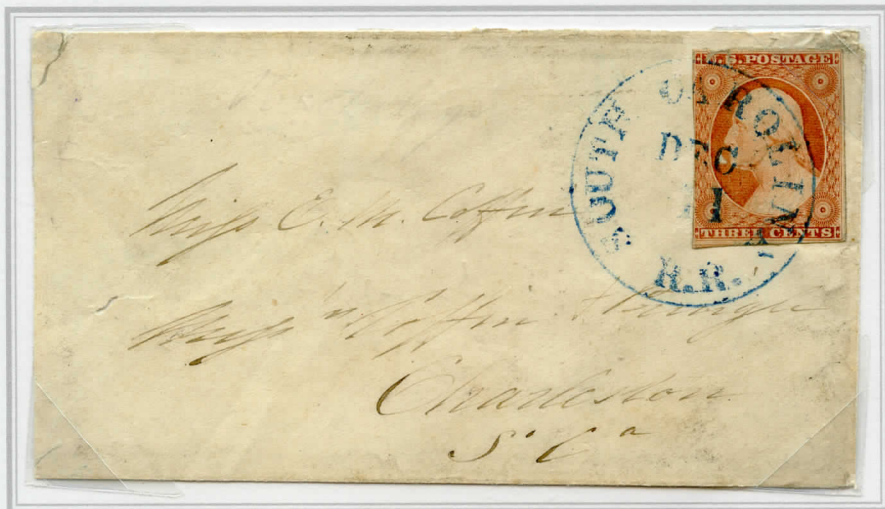 U.S. POSTAGE
THREE CENTS
SOUTH CAROLINA
DEC
11
R.R.
Miss E. M. Coffin
Coffin &
Charleston
So Ca